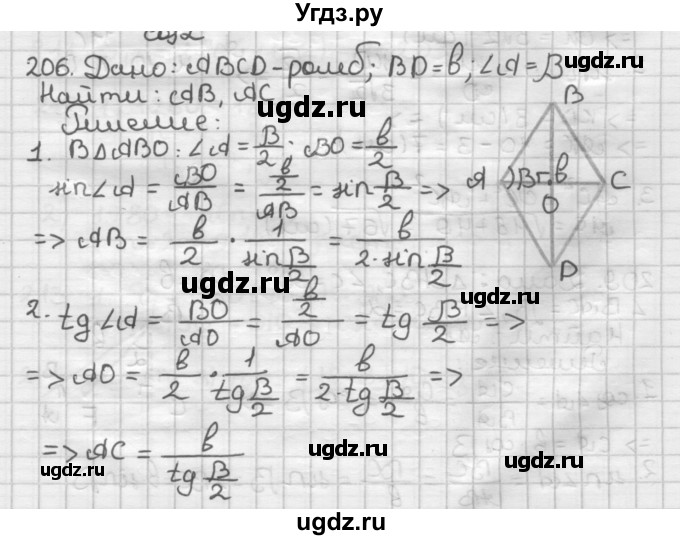 Угдз.ру
206. Дано: ABCD - ромб; BD = b; ∠A = β
Найти: AB, AC
Решение:
1. В △ABO: ∠A = β/2; BO = b/2
sin∠A = BO/AB = (b/2)/AB = sin β/2 =>
=> AB = b/2 · 1/(sin β/2) = b/(2·sin β/2)
2. tg∠A = BO/AO = (b/2)/AO = tg β/2 =>
=> AO = b/2 · 1/(tg β/2) = b/(2·tg β/2) =>
=> AC = b/(tg β/2)
B
A
C
O
D
ugdz.ru
ugdz.ru
ugdz.ru
ugdz.ru
ugdz.ru
ugdz.ru
ugdz.ru
ugdz.ru
ugdz.ru